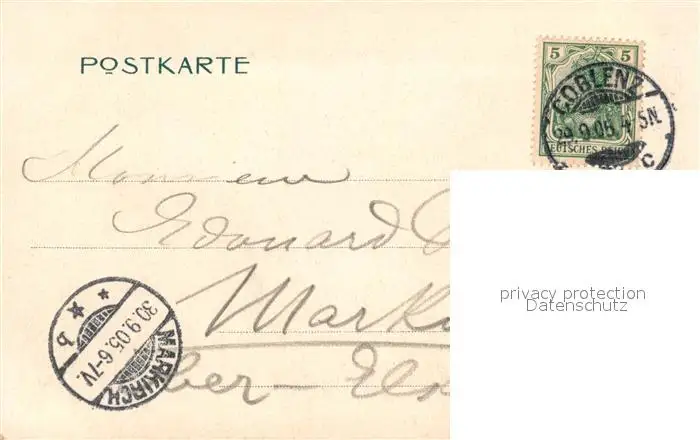 POSTKARTE
5 5
COBLENZ
29.9.05. 4-5N.
C
DEUTSCHES REICH
Monsieur
Edouard
Mark
Ober-Els
MARKIRCH
30.9.05.6-7V.
b
privacy protection
Datenschutz